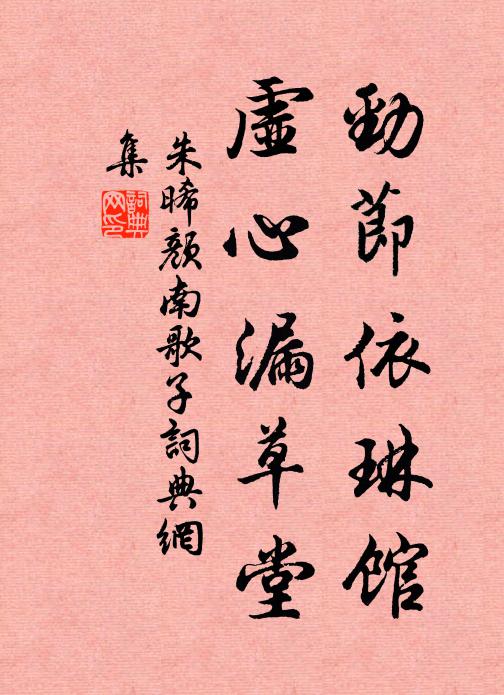 勁節依琳館
虛心漏草堂
朱晞顏南歌子詞典網
集
詞典
网印